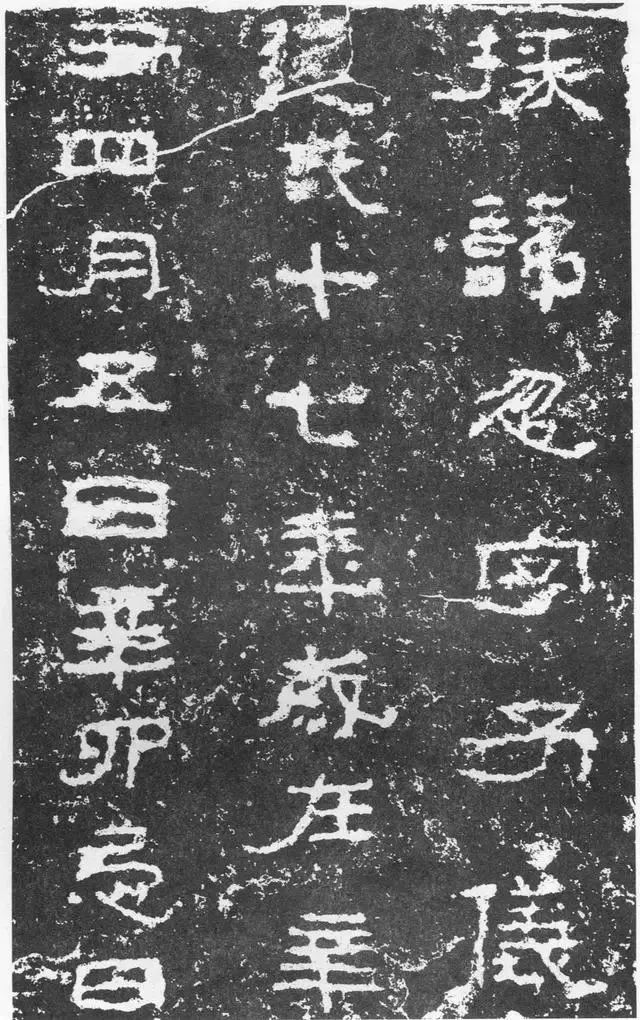 掾諱忽字子儀
建武十七年歲在辛
丑四月五日辛卯忌日